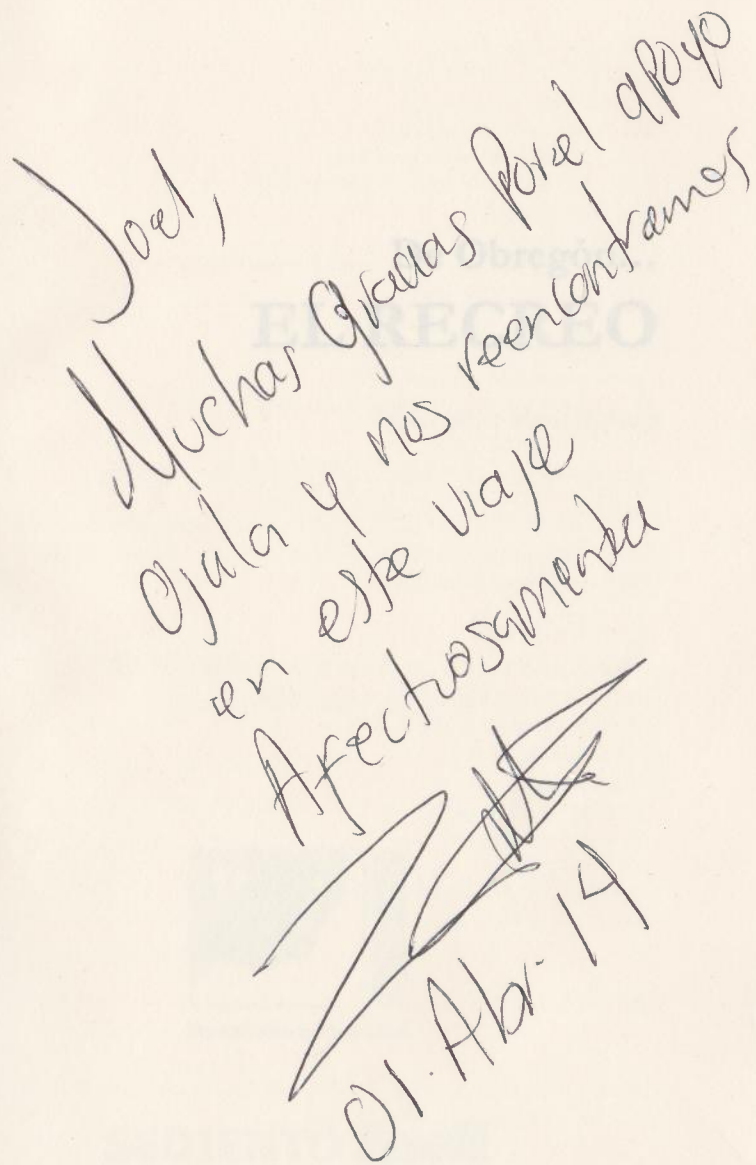 Joel,
Muchas Gracias Por el apoyo
Ojala y nos reencontramos
en este viaje
Afectuosamente
01. Abr. 14
De Obregón...
EL RECREO